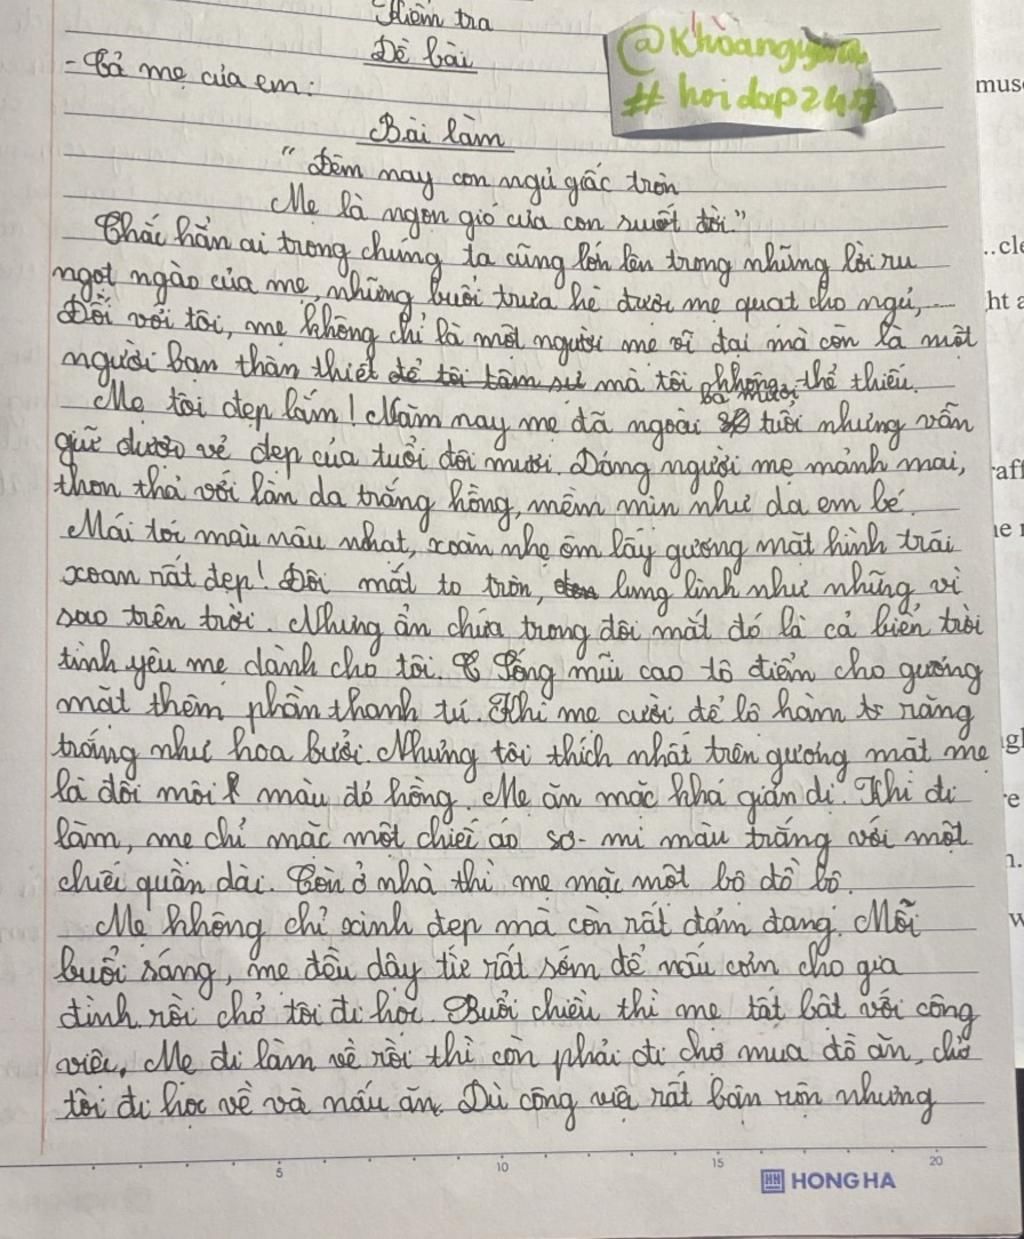 Kiểm tra
Đề bài
- Tả mẹ của em:
@Khoanguyen
# hoidap247
Bài làm
“Đêm nay con ngủ giấc tròn
Mẹ là ngọn gió của con suốt đời.”
Chắc hẳn ai trong chúng ta cũng lớn lên trong những lời ru
ngọt ngào của mẹ, những buổi trưa hè được mẹ quạt cho ngủ,...
Đối với tôi, mẹ không chỉ là một người mẹ vĩ đại mà còn là một
người bạn thân thiết để tôi tâm sự mà tôi không thể thiếu.
Mẹ tôi đẹp lắm! Năm nay mẹ đã ngoài ba mươi tuổi nhưng vẫn
giữ được vẻ đẹp của tuổi đôi mươi. Dáng người mẹ mảnh mai,
thon thả với làn da trắng hồng, mềm mịn như da em bé.
Mái tóc màu nâu nhạt, xoăn nhẹ ôm lấy gương mặt hình trái
xoan rất đẹp! Đôi mắt to tròn, lung linh như những vì
sao trên trời. Nhưng ẩn chứa trong đôi mắt đó là cả biển trời
tình yêu mẹ dành cho tôi. Sống mũi cao tô điểm cho gương
mặt thêm phần thanh tú. Khi mẹ cười để lộ hàm răng
trắng như hoa bưởi. Nhưng tôi thích nhất trên gương mặt mẹ
là đôi môi màu đỏ hồng. Mẹ ăn mặc khá giản dị. Khi đi
làm, mẹ chỉ mặc một chiếc áo sơ-mi màu trắng với một
chiếc quần dài. Còn ở nhà thì mẹ mặc một bộ đồ bộ.
Mẹ không chỉ xinh đẹp mà còn rất đảm đang. Mỗi
buổi sáng, mẹ đều dậy từ rất sớm để nấu cơm cho gia
đình rồi chở tôi đi học. Buổi chiều thì mẹ tất bật với công
việc, Mẹ đi làm về rồi thì còn phải đi chợ mua đồ ăn, chở
tôi đi học về và nấu ăn. Dù công việc rất bận rộn nhưng
5 10 15 20
HONG HA